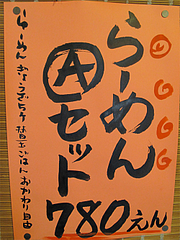 らーめん
Ⓐセット
780えん
らーめん ぎょうざ5ヶ 替玉ごはんおかわり自由